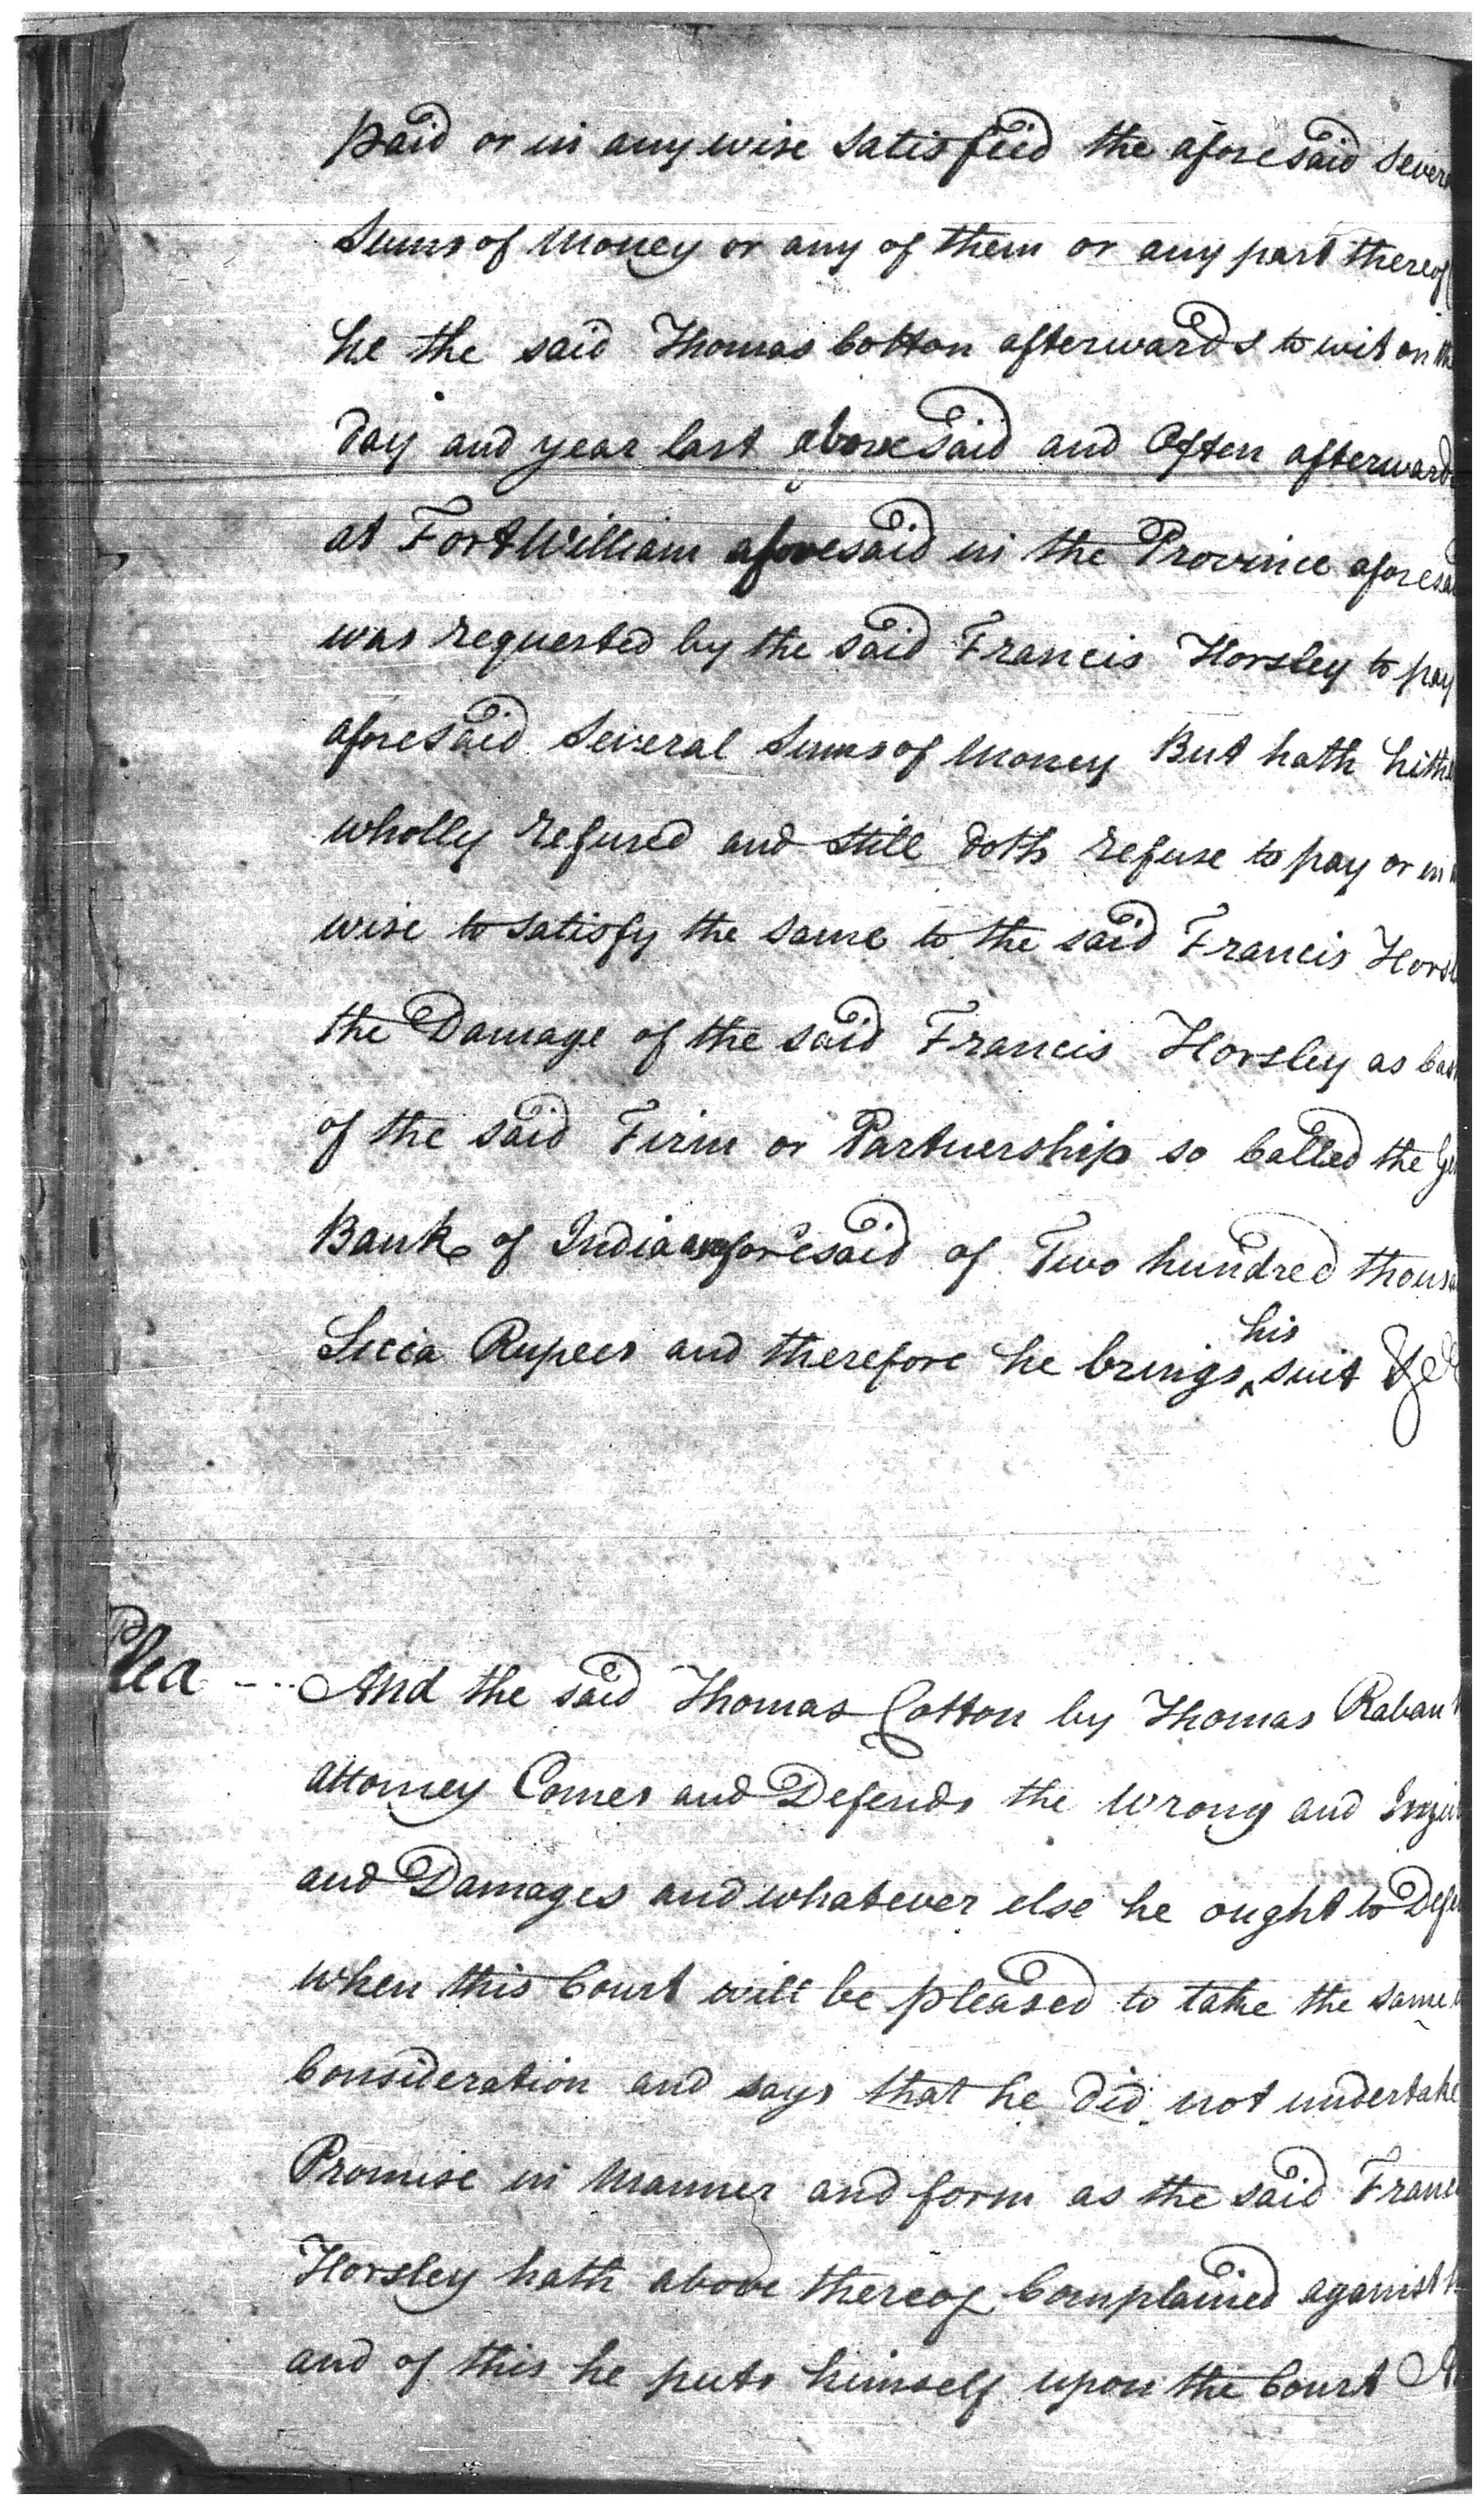 paid or in any wise Satisfied the aforesaid Sever
Sums of Money or any of them or any part thereof
he the said Thomas Cotton afterwards to wit on the
day and year last abovesaid and Often afterwards
at Fort William aforesaid in the Province aforesa
was requested by the said Francis Horsley to pay
aforesaid Several Sums of Money But hath hithe
wholly refused and still doth refuse to pay or in
wise to satisfy the same to the said Francis Horsl
the Damage of the said Francis Horsley as Cas
of the said Firm or Partnership so Called the Ge
Bank of India aforesaid of Two hundred thousa
Sicca Rupees and therefore he brings his suit &c
Plea --- And the said Thomas Cotton by Thomas Raban
Attorney Comes and Defends the Wrong and Inju
and Damages and whatever else he ought to Defe
when this Court will be pleased to take the same
Consideration and says that he did not undertake
Promise in Manner and form as the said Franc
Horsley hath above thereof Complained against h
and of this he puts himself upon the Court